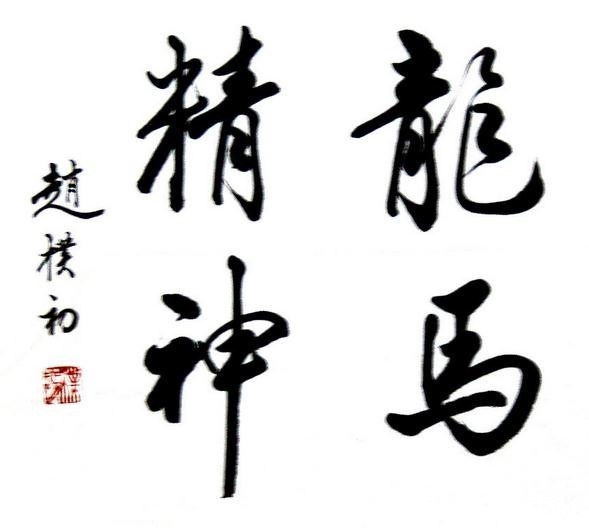 龍馬
精神
趙樸初